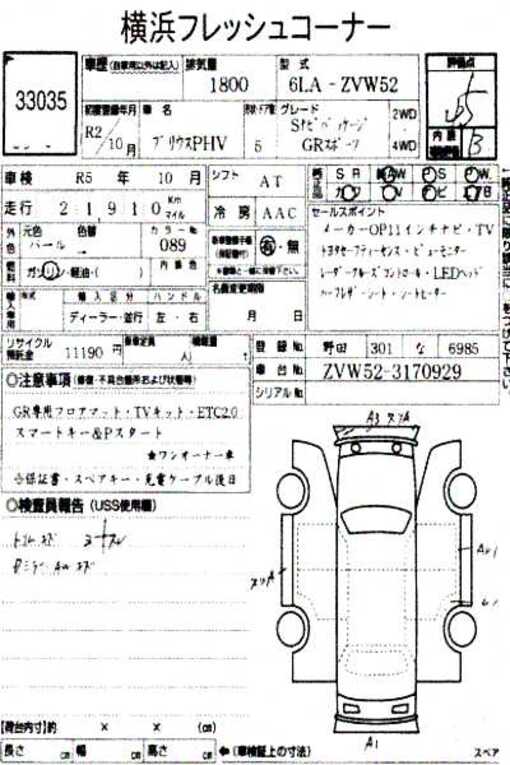 横浜フレッシュコーナー
33035
車歴 (自家用以外は記入)
排気量
1800
型式
6LA - ZVW52
評価点
初度登録年月
R2/10月
車名
プリウスPHV
ドア数
5
グレード
Sナビパッケージ
GRスポーツ
2WD
4WD
内装
B
車検 R5 年 10 月
シフト AT
S R
AW
P S
P W
カワ
T V
ナビ
走行 21,910 Km マイル
冷房 AAC
セールスポイント
メーカーOP11インチナビ・TV
トヨタセーフティーセンス・ビューモニター
レーダークルーズコントロール・LEDヘッド
ハーフレザーシート・シートヒーター
外色
元色 色替
パール →
カラーNo
089
(保証書付)
有・無
燃料
ガソリン・軽油・( )
内装色
名義変更期限
月 日
輸入車用
年式
輸入区分
ハンドル
ディーラー・並行
左・右
リサイクル預託金
11190 円
乗車定員
人
積載量
t
登録No.
野田 301 な 6985
車台No.
ZVW52-3170929
シリアルNo.
◎注意事項 (修復・不具合箇所および状態等)
GR専用フロアマット・TVキット・ETC2.0
スマートキー&Pスタート
★ワンオーナー車
☆保証書・スペアキー・充電ケーブル後日
◎検査員報告 (USS使用欄)
A3
A1
【荷台内寸】約 × × (cm)
長さ cm 幅 cm 高さ cm
←(車検証上の寸法)
スペア